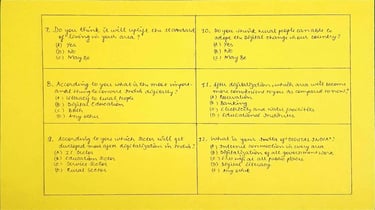 7. Do you think it will uplift the standard
of living in your area?
(A) Yes
(B) No
(C) May Be
8. According to you what is the most impor-
tant thing to make India digitally?
(A) Literacy to Rural People
(B) Digital Education
(C) Both
(D) Any other
9. According to you which sector will get
developed most after digitalization in India?
(A) I.T. Sector
(B) Education Sector
(C) Service Sector
(D) Rural Sector
10. Do you think rural people can able to
adopt the Digital change in our country?
(A) Yes
(B) No
(C) May Be
11. After digitalization, which area will become
more convenient to you as compared to now?
(A) Education
(B) Banking
(C) Electricity and Water facilities
(D) Educational Institutes
12. What is your
(A) Internet connection in every area
(B) Digitalization of all government work
(C) Free wifi at all public places
(D) Digital Literacy
(E) Any other